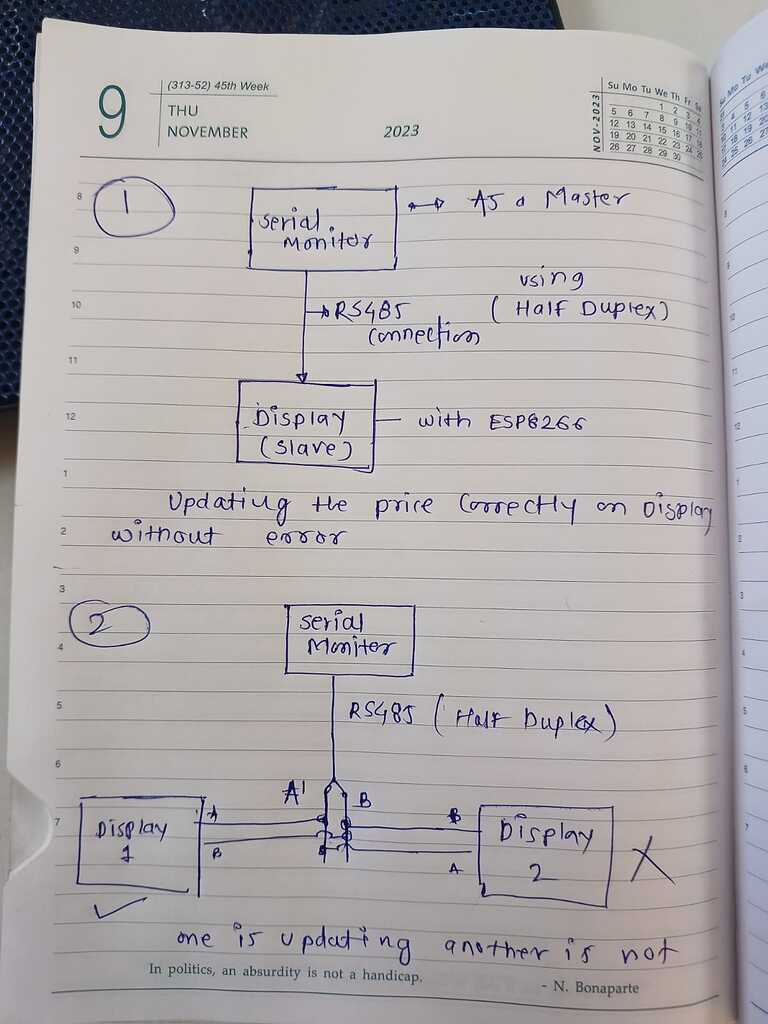 9
(313-52) 45th Week
THU
NOVEMBER
2023
NOV-2023
Su Mo Tu We Th Fr Sa
1 2 3 4
5 6 7 8 9 10 11
12 13 14 15 16 17 18
19 20 21 22 23 24 25
26 27 28 29 30
8
1
Serial
Monitor
As a Master
9
using
10
RS485
(Half Duplex)
connection
11
12
Display
(Slave)
with ESP8266
1
Updating the price correctly on Display
2
without error
3
2
4
Serial
Moniter
5
RS485 (Half Duplex)
6
A'
B
7
Display
1
A
B
B
A
Display
2
one is updating another is not
In politics, an absurdity is not a handicap.
- N. Bonaparte